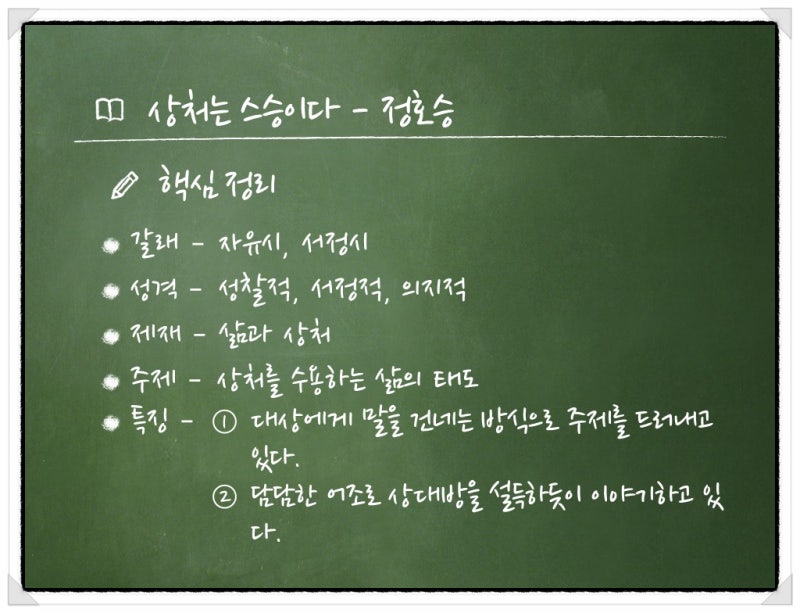 상처는 스승이다 - 정호승
핵심 정리
갈래 - 자유시, 서정시
성격 - 성찰적, 서정적, 의지적
제재 - 삶과 상처
주제 - 상처를 수용하는 삶의 태도
특징 - ① 대상에게 말을 건네는 방식으로 주제를 드러내고
있다.
② 담담한 어조로 상대방을 설득하듯이 이야기하고 있
다.